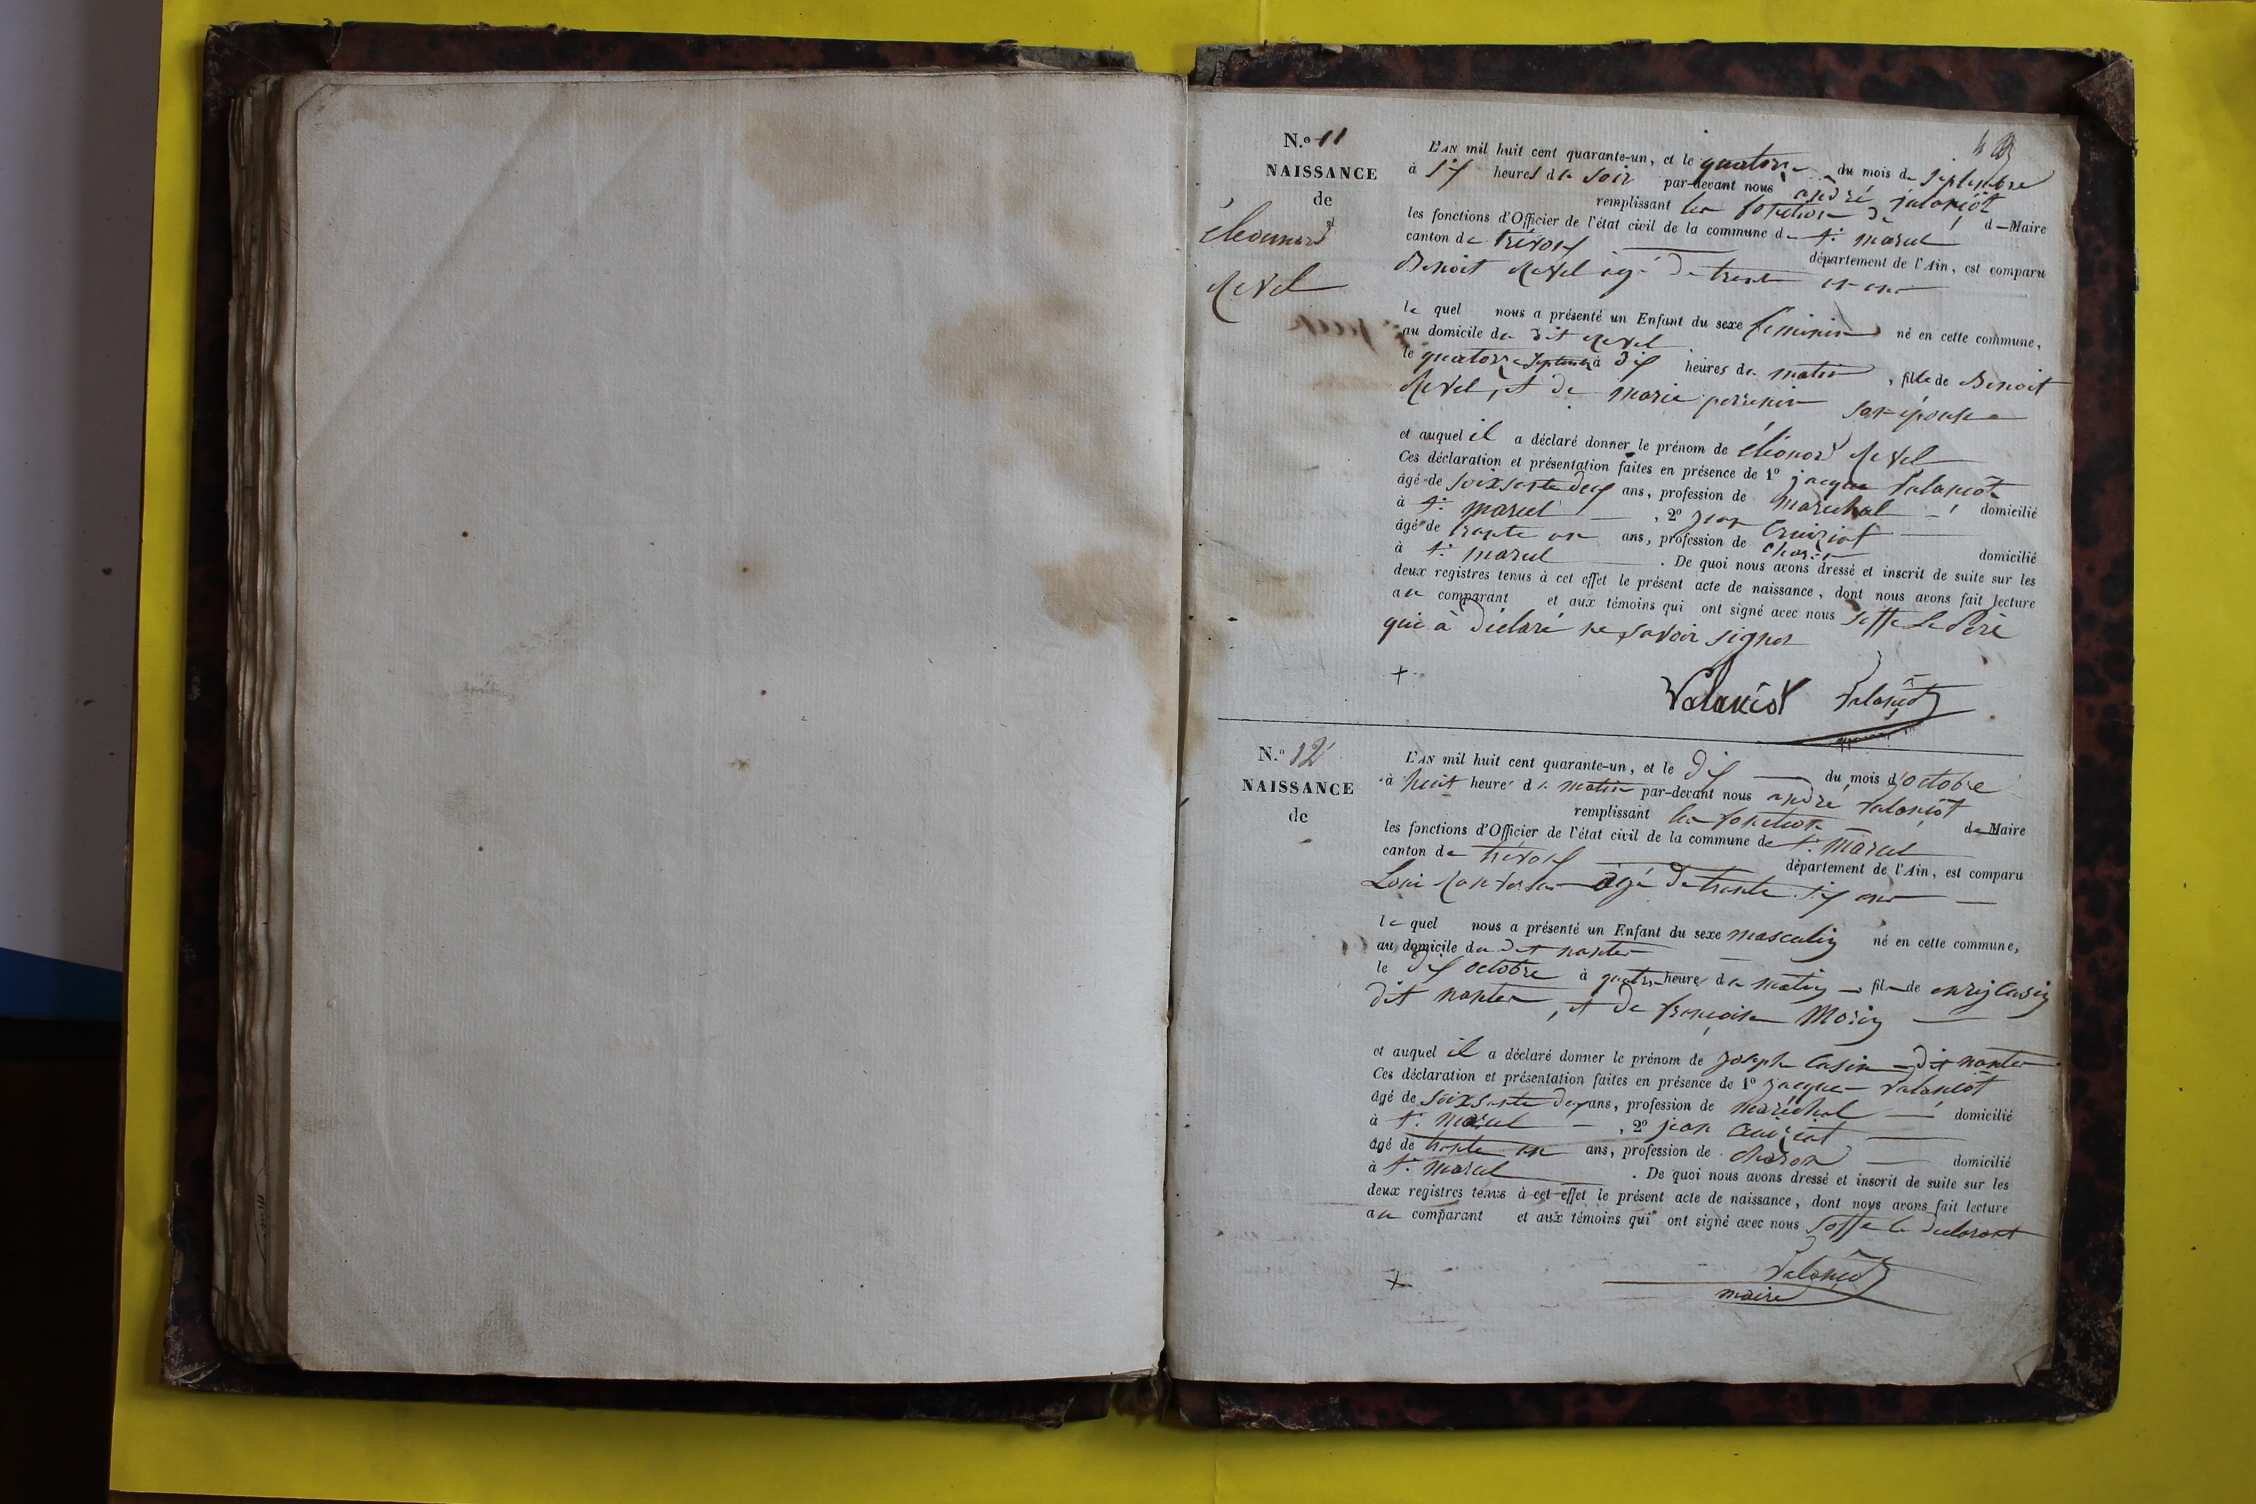 N.º 11
NAISSANCE
de
éléonord
Revel
L'AN mil huit cent quarante-un, et le quatorze du mois de septembre
à six heures du soir par-devant nous andré Valancôt
remplissant les fonction de d Maire
les fonctions d'Officier de l'état civil de la commune de St marcel
canton de trévoux département de l'Ain, est comparu
Benoit Revel agé de trente un ans
le quel nous a présenté un Enfant du sexe feminin né en cette commune,
au domicile du dit Revel
le quatorze septembre à dix heures du matin, fille de Benoit
Revel, et de marie perrenin son épouse
et auquel il a déclaré donner le prénom de éléonord Revel
Ces déclaration et présentation faites en présence de 1º jacque Valancôt
âgé de soixsante deux ans, profession de maréchal domicilié
à St marcel, 2º jean Cruiziat
âgé de trante un ans, profession de charon domicilié
à St marcel. De quoi nous avons dressé et inscrit de suite sur les
deux registres tenus à cet effet le présent acte de naissance, dont nous avons fait lecture
au comparant et aux témoins qui ont signé avec nous soffe le Père
qui à déclaré ne savoir signer
+ Valancot Valancôt
N.º 12
NAISSANCE
de
L'AN mil huit cent quarante-un, et le dix du mois d'octobre
à huit heure du matin par-devant nous andré Valancôt
remplissant les fonction de Maire
les fonctions d'Officier de l'état civil de la commune de St marcel
canton de trévoux département de l'Ain, est comparu
Loui agé de trante six ans
le quel nous a présenté un Enfant du sexe masculin né en cette commune,
au domicile du dit nanter
le dix octobre à quatre heure du matin fils de Casin
dit nanter, et de françoise Morin
et auquel il a déclaré donner le prénom de joseph Casin dit nanter
Ces déclaration et présentation faites en présence de 1º jacque Valancôt
âgé de soixsante deux ans, profession de maréchal domicilié
à St marcel, 2º jean Cruiziat
âgé de trante un ans, profession de charon domicilié
à St marcel. De quoi nous avons dressé et inscrit de suite sur les
deux registres tenus à cet effet le présent acte de naissance, dont nous avons fait lecture
au comparant et aux témoins qui ont signé avec nous soffe le declarant
+ Valancôt
maire